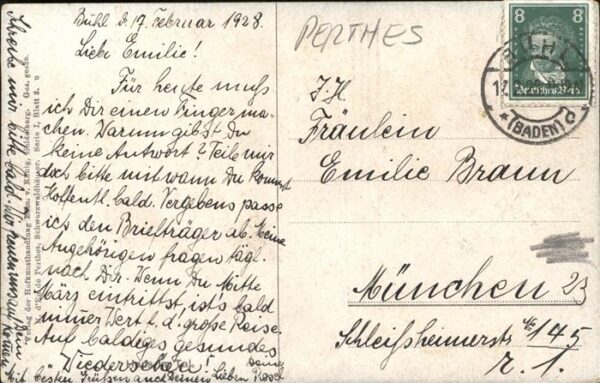 Bühl d. 17. Februar 1928.
Liebe Emilie!
Für heute muß
ich Dir einen Finger ma-
chen. Warum gibst Du
keine Antwort? Teile mir
doch bitte mit wann Du kommst
Hoffentl. bald. Vergebens passe
ich den Briefträger ab. Meine
Angehörigen fragen tägl.
nach Dir. Wenn Du Mitte
März eintriffst, ist's bald
d. große Reise
Auf baldiges gesundes
Wiedersehen!
besten Grüßen an Deine Lieben
Schreibe mir bitte bald.
Verlag der Hofkunsthandlung
d'Erde Perthes, Schwarzwaldhäuser, Serie I, Blatt 2.
PERTHES
8 8
Deutsches Reich
BÜHL
17.
(BADEN)
Fräulein
Emilie Braun
München 23
Schleißheimerstr. 145
r. 1.